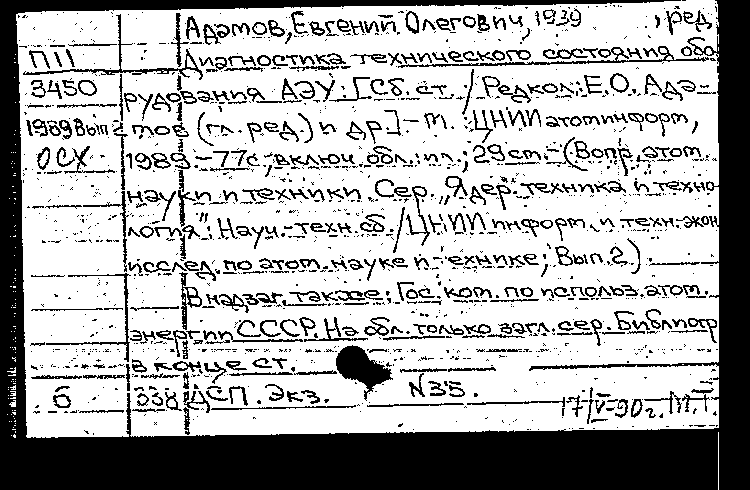 Адамов, Евгений Олегович, 1939 , ред.
П11 Диагностика технического состояния обо-
3450 рудования АЭУ: [Сб. ст. / Редкол.: Е.О. Ада-
1989 Вып 2 мов (гл. ред.) и др.] - М.: ЦНИИатоминформ,
ОСХ 1989. - 77 с., включ. обл.: ил.; 29 см. - (Вопр. атом.
науки и техники. Сер. "Ядер. техника и техно-
логия": Науч.-техн. сб. / ЦНИИ информ. и техн.-экон.
исслед. по атом. науке и технике; Вып. 2).
В надзаг. также: Гос. ком. по использ. атом.
энергии СССР. На обл. только загл. сер. Библиогр.
в конце ст.
б 338 ДСП. Экз. N35.
17/V-90г. М.Т.